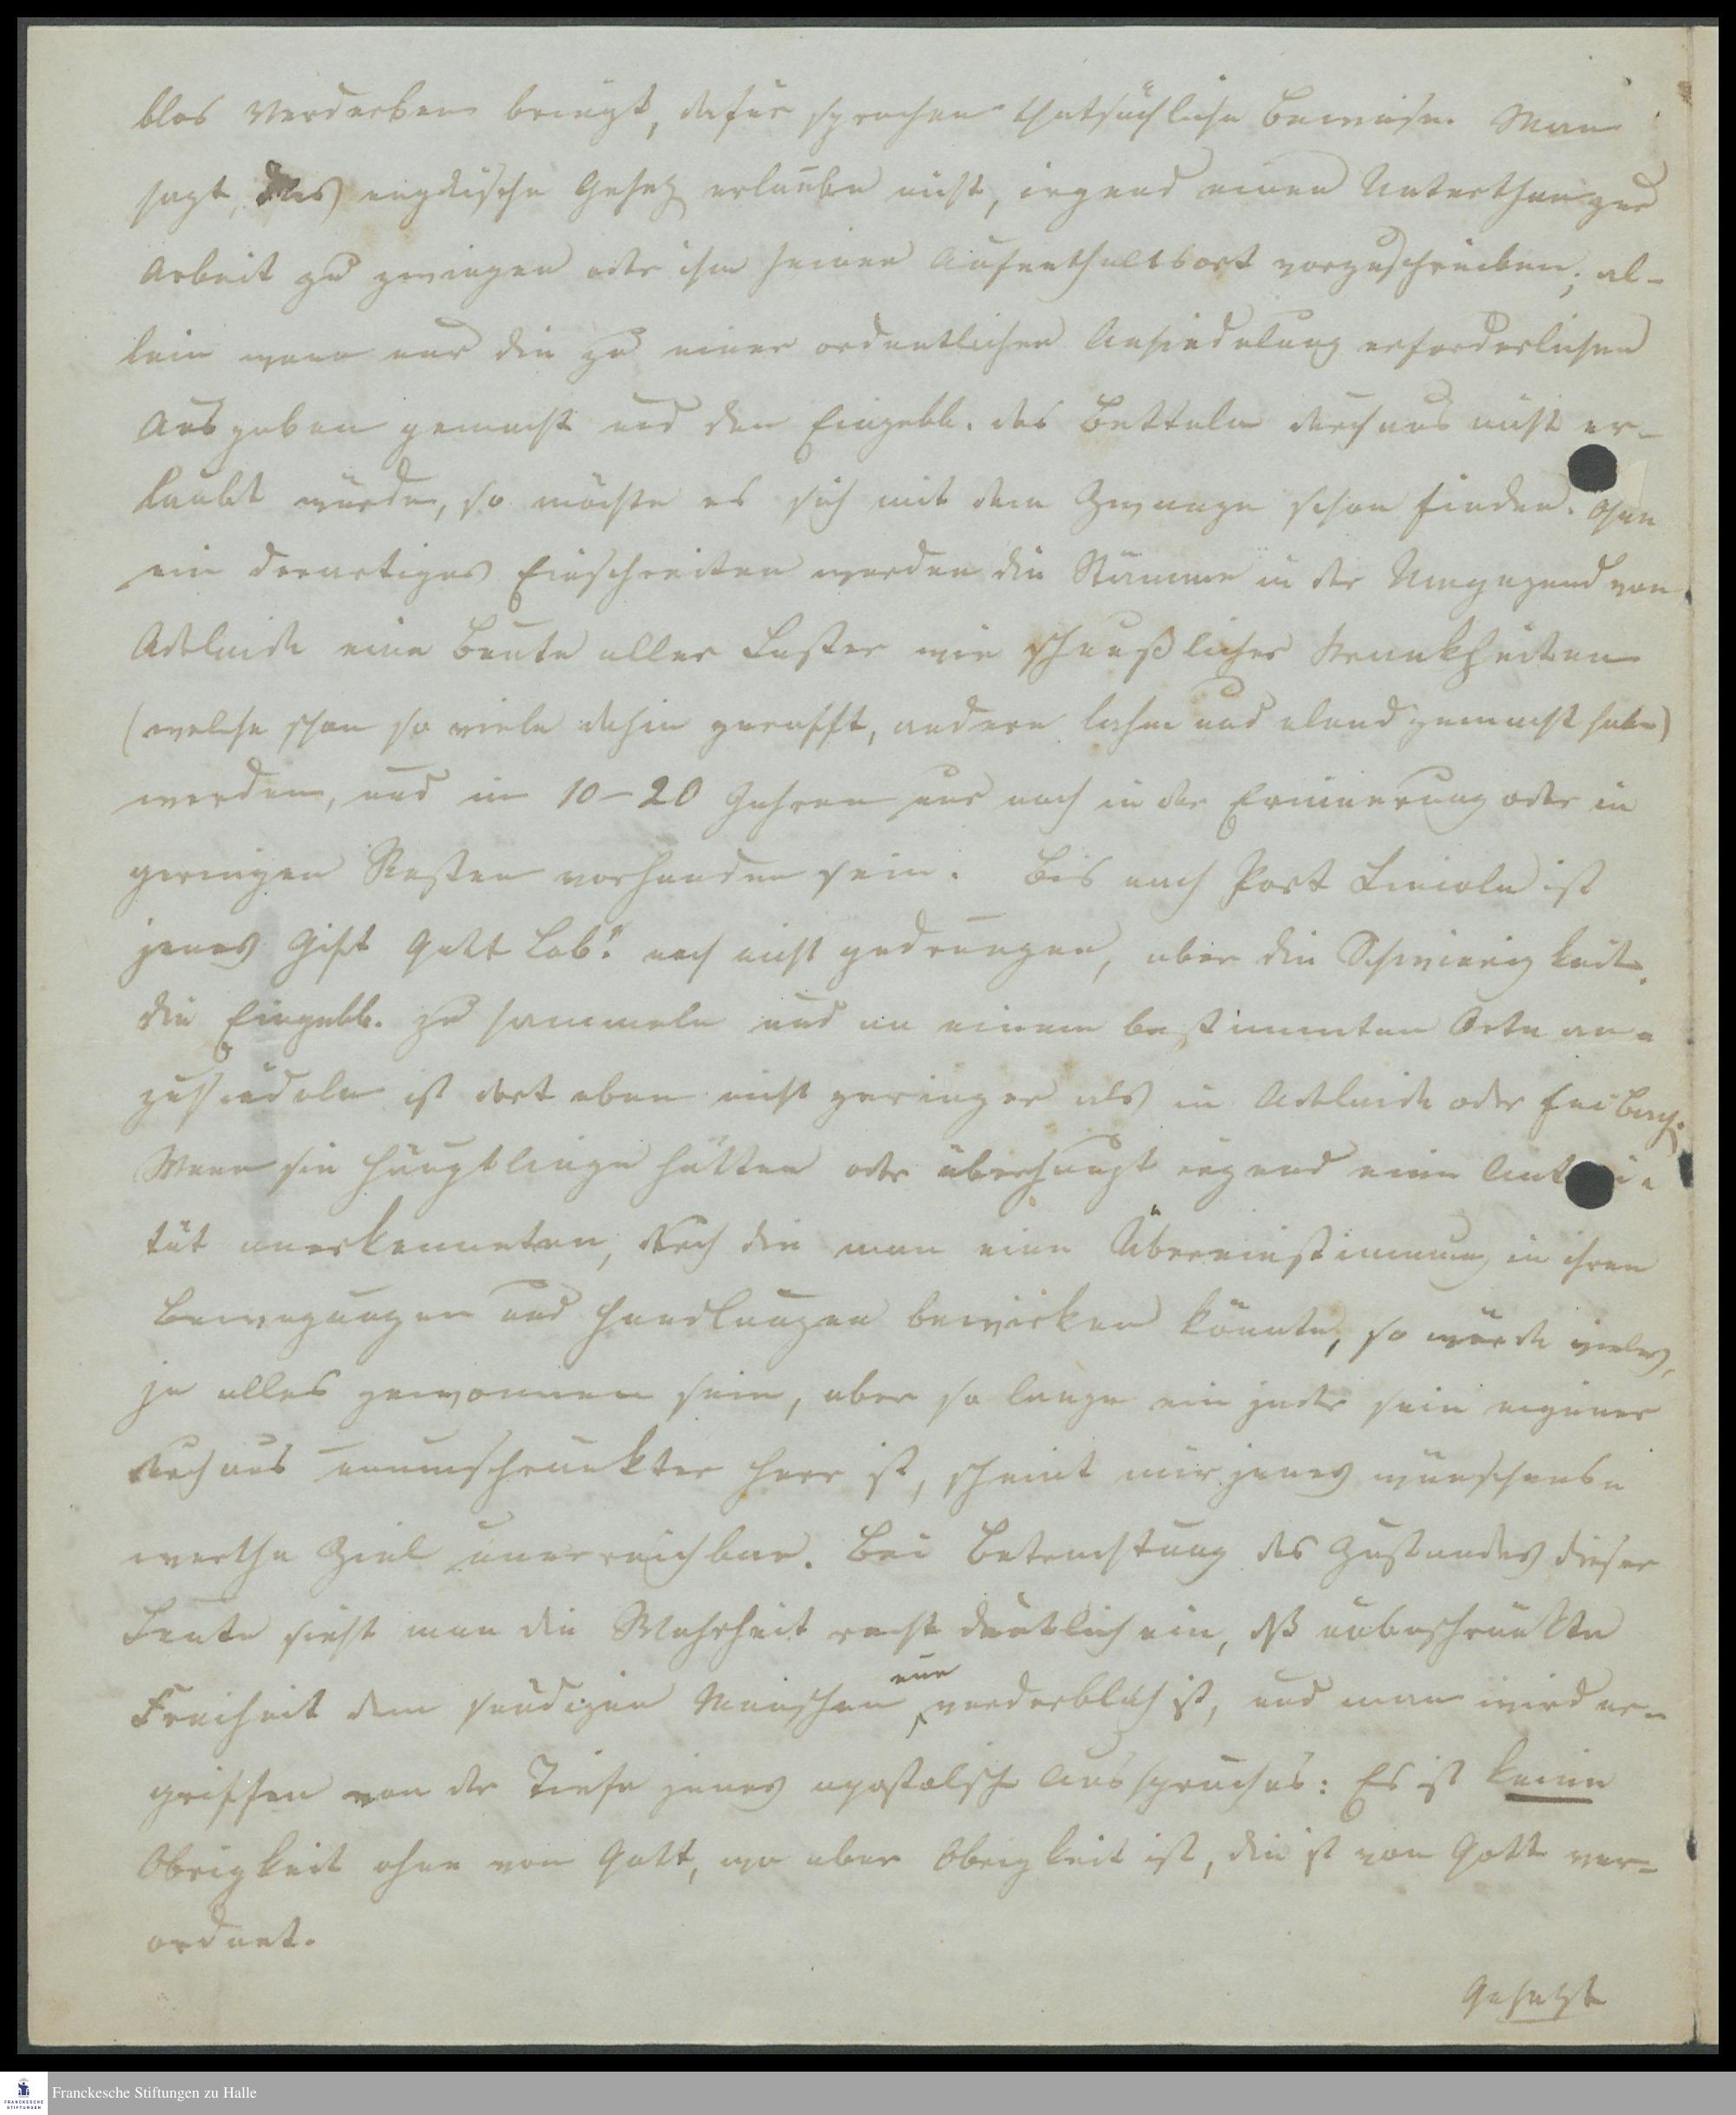 blos Verderben bringt, dafür sprechen thatsächliche Beweise. Man
sagt, das englische Gesetz erlaube nicht, irgend einen Unterthan zur
Arbeit zu zwingen oder ihm seinen Aufenthaltsort vorzuschreiben; al-
lein wenn nur die zu einer ordentlichen Ansiedelung erforderlichen
Ausgaben gemacht und den Eingebb. das Betteln durchaus nicht er-
laubt würde, so möchte es sich mit dem Zwange schon finden. Ohne
ein derartiges Einschreiten werden die Stämme in der Umgegend von
Adelaide eine Beute aller Laster wie scheußlicher Krankheiten
(welche schon so viele dahin gerafft, andere lahm und elend gemacht haben)
werden, und in 10-20 Jahren nur noch in der Erinnerung oder in
geringen Resten vorhanden sein. Bis nach Port Lincoln ist
jenes Gift Gott Lob! noch nicht gedrungen, aber die Schwierigkeit,
die Eingebb. zu sammeln und an einem bestimmten Orte an-
zusiedeln ist dort eben nicht geringer als in Adelaide oder
Wenn sie Häuptlinge hätten oder überhaupt irgend eine Aut i-
tät anerkennten, durch die man eine Übereinstimmung in ihren
Bewegungen und Handlungen bewirken könnte, so würde vieles,
ja alles gewonnen sein, aber so lange ein jeder sein eigener
durchaus unumschränkter Herr ist, scheint mir jenes wünschens-
werthe Ziel unerreichbar. Bei Betrachtung des Zustandes dieser
Leute sieht man die Wahrheit recht deutlich ein, dß unbeschränkte
Freiheit dem sündigen Menschen nur verderblich ist, und man wird er-
griffen von der Tiefe jenes apostolisch Ausspruches: Es ist keine
Obrigkeit ohne von Gott, wo aber Obrigkeit ist, die ist von Gott ver-
ordnet.
Gesetzt
Franckesche Stiftungen zu Halle
FRANCKESCHE
STIFTUNGEN